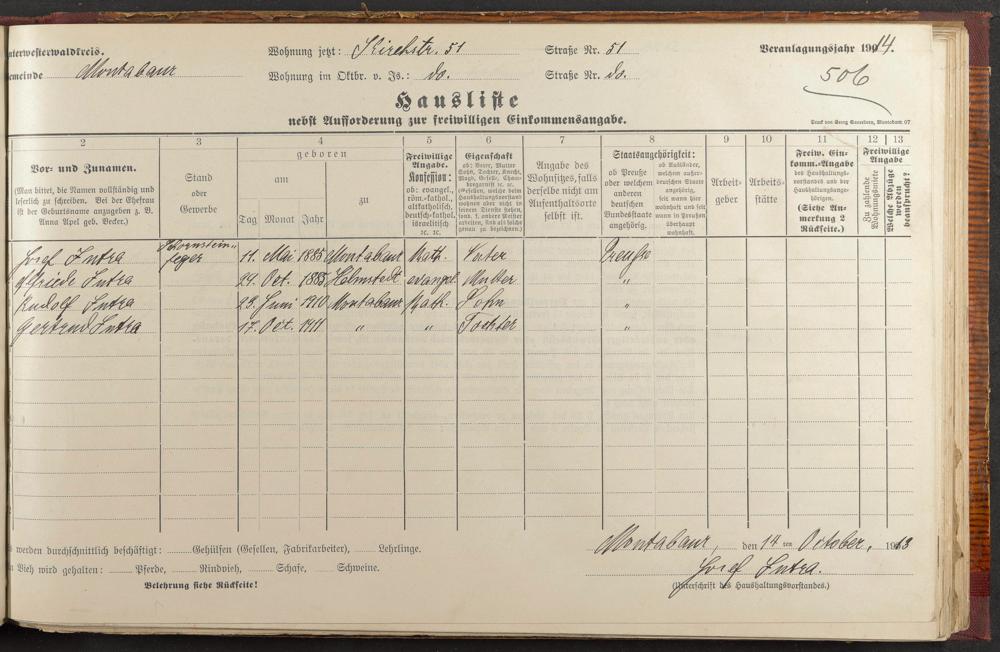 nterwesterwaldkreis. Wohnung jetzt: Kirchstr. 51 Straße Nr. 51 Veranlagungsjahr 1914.
emeinde Montabaur Wohnung im Oktbr. v. Js.: do. Straße Nr. do. 506
Hausliste
nebst Aufforderung zur freiwilligen Einkommensangabe.
2 3 4 5 6 7 8 9 10 11 12 13
Vor- und Zunamen.
(Man bittet, die Namen vollständig und
leserlich zu schreiben. Bei der Ehefrau
ist der Geburtsname anzugeben z. B.
Anna Apel geb. Becker.)
Stand
oder
Gewerbe
geboren
am
Tag Monat Jahr
zu
Freiwillige
Angabe.
Konfession:
ob: evangel.,
röm.-kathol.,
altkatholisch,
deutsch-kathol.
israelitisch
ec. ec.
Eigenschaft
Angabe des
Wohnsitzes, falls
derselbe nicht am
Aufenthaltsorte
selbst ist.
Staatsangehörigkeit:
ob Preuße
oder welchem
anderen
deutschen
Bundesstaate
angehörig.
ob Ausländer,
welchem außer-
deutschen Staate
angehörig,
seit wann hier
wohnhaft und seit
wann in Preußen
überhaupt
wohnhaft.
Arbeit-
geber
Arbeits-
stätte
Freiw. Ein-
komm.-Angabe
des Haushaltungs-
vorstandes und der
Haushaltungsange-
hörigen.
(Siehe An-
merkung 2
Rückseite.)
Freiwillige
Angabe
Zu zahlende
Wohnungsmiete
Welche Abzüge
werden
beansprucht?
Josef Intra Schornstein-
feger 11. Mai 1885 Montabaur Kath. Vater Preuße
Intra 29. Oct. 1885 Helmstedt evangel. Mutter "
Rudolf Intra 23. Juni 1910 Montabaur Kath. Sohn "
Gertrud Intra 17. Oct. 1911 " " Tochter "
werden durchschnittlich beschäftigt: Gehülfen (Gesellen, Fabrikarbeiter), Lehrlinge.
Vieh wird gehalten: Pferde, Rindvieh, Schafe, Schweine.
Belehrung siehe Rückseite!
Montabaur, den 14 ten October. 1913
Josef Intra.
(Unterschrift des Haushaltungsvorstandes.)